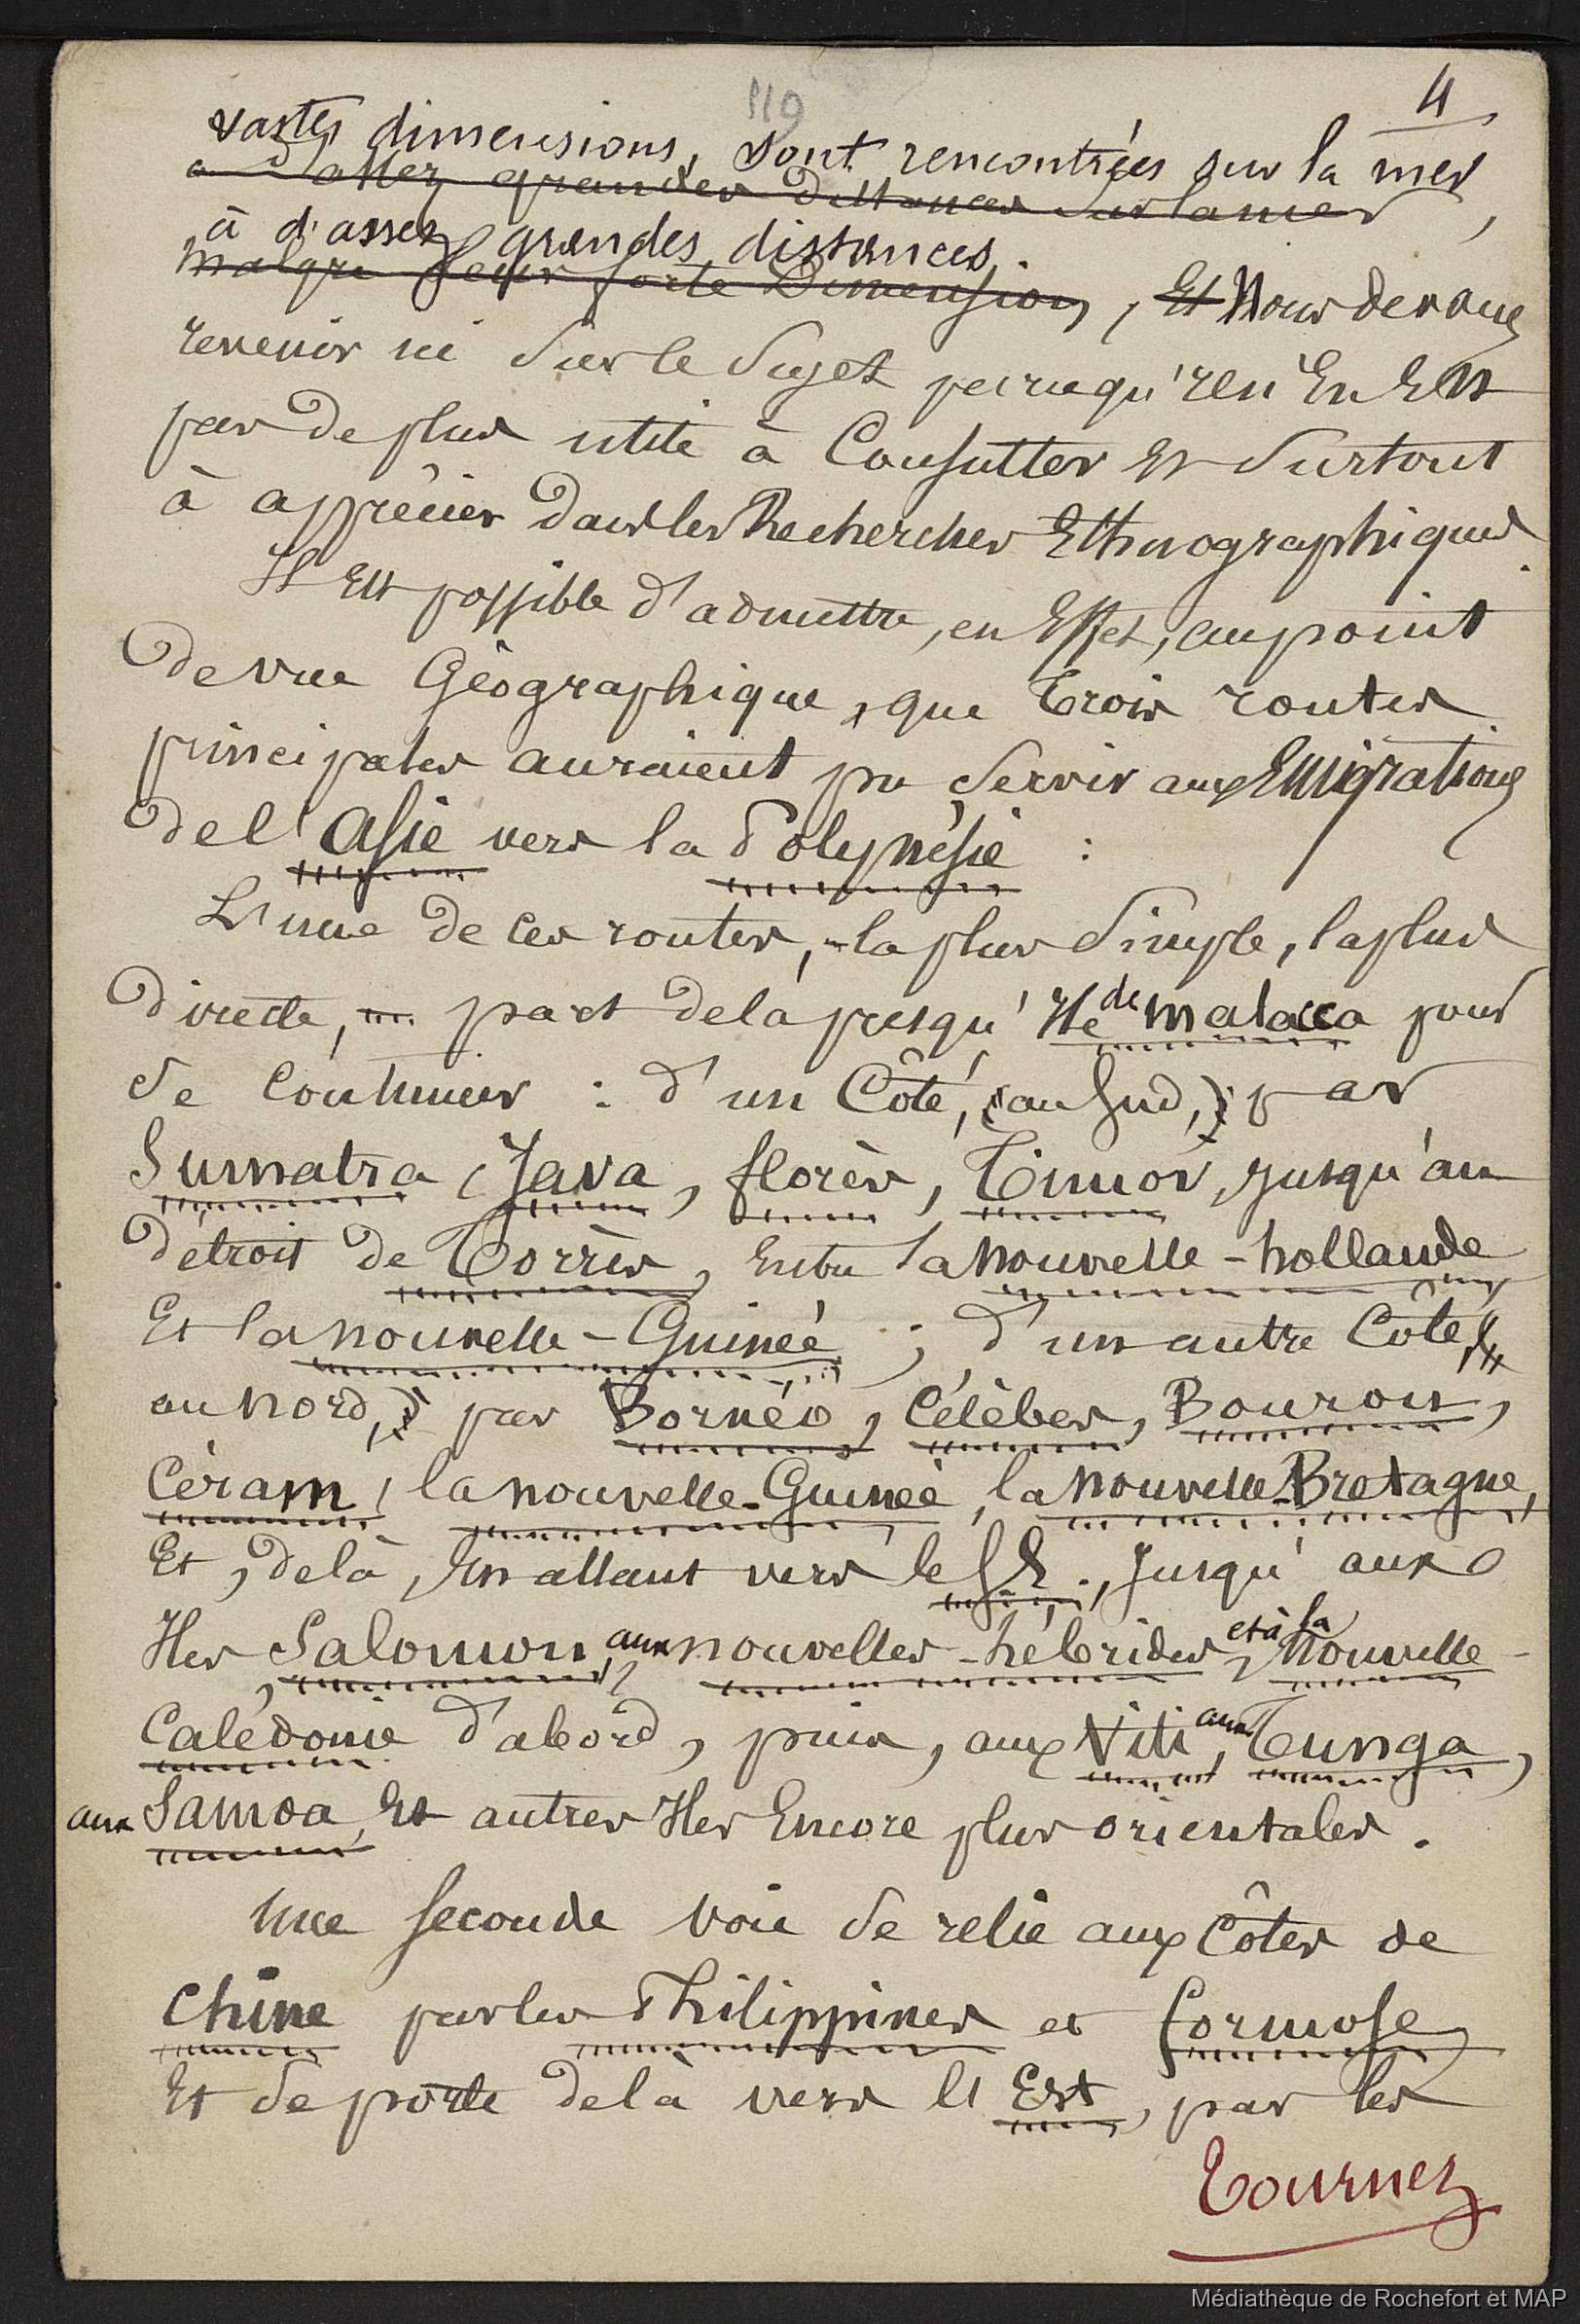 119
4
vastes dimensions, sont rencontrées sur la mer
à d'assez grandes distances sur la mer,
à d'assez grandes distances.
malgré leur forte Dimension, Et Nous devons
revenir ici sur le sujet puisqu'il En Est
pas de plus utile à Consulter Et surtout
à apprécier dans les Recherches Ethnographiques.
Il Est possible d'admettre, en Effet, au point
de vue Géographique, que trois routes
principales auraient pu servir aux Emigrations
de l'Asie vers la Polynésie :
L'une de ces routes, la plus simple, la plus
directe, part de la presqu'Ile de malacca pour
se continuer : d'un Côté, (au Sud,) par
Sumatra, Java, florès, Timor, jusqu'au
détroit de Torrès, Entre la nouvelle-hollande
Et la nouvelle-Guinée ; d'un autre Côté,
au nord, par Bornéo, Célèbes, Bourou,
Céram, la nouvelle-Guinée, la nouvelle-Bretagne,
Et, de là, En allant vers le S E., jusqu'aux
Iles Salomon, aux nouvelles-hébrides, et à la nouvelle-
Calédonie d'abord, puis, aux Viti, aux Tunga,
aux Samoa, Et autres Iles Encore plus orientales.
Une seconde voie se relie aux Côtes de
Chine par les Philippines et formose,
Et se porte de là vers l'Est, par les
Tournez
Médiathèque de Rochefort et MAP